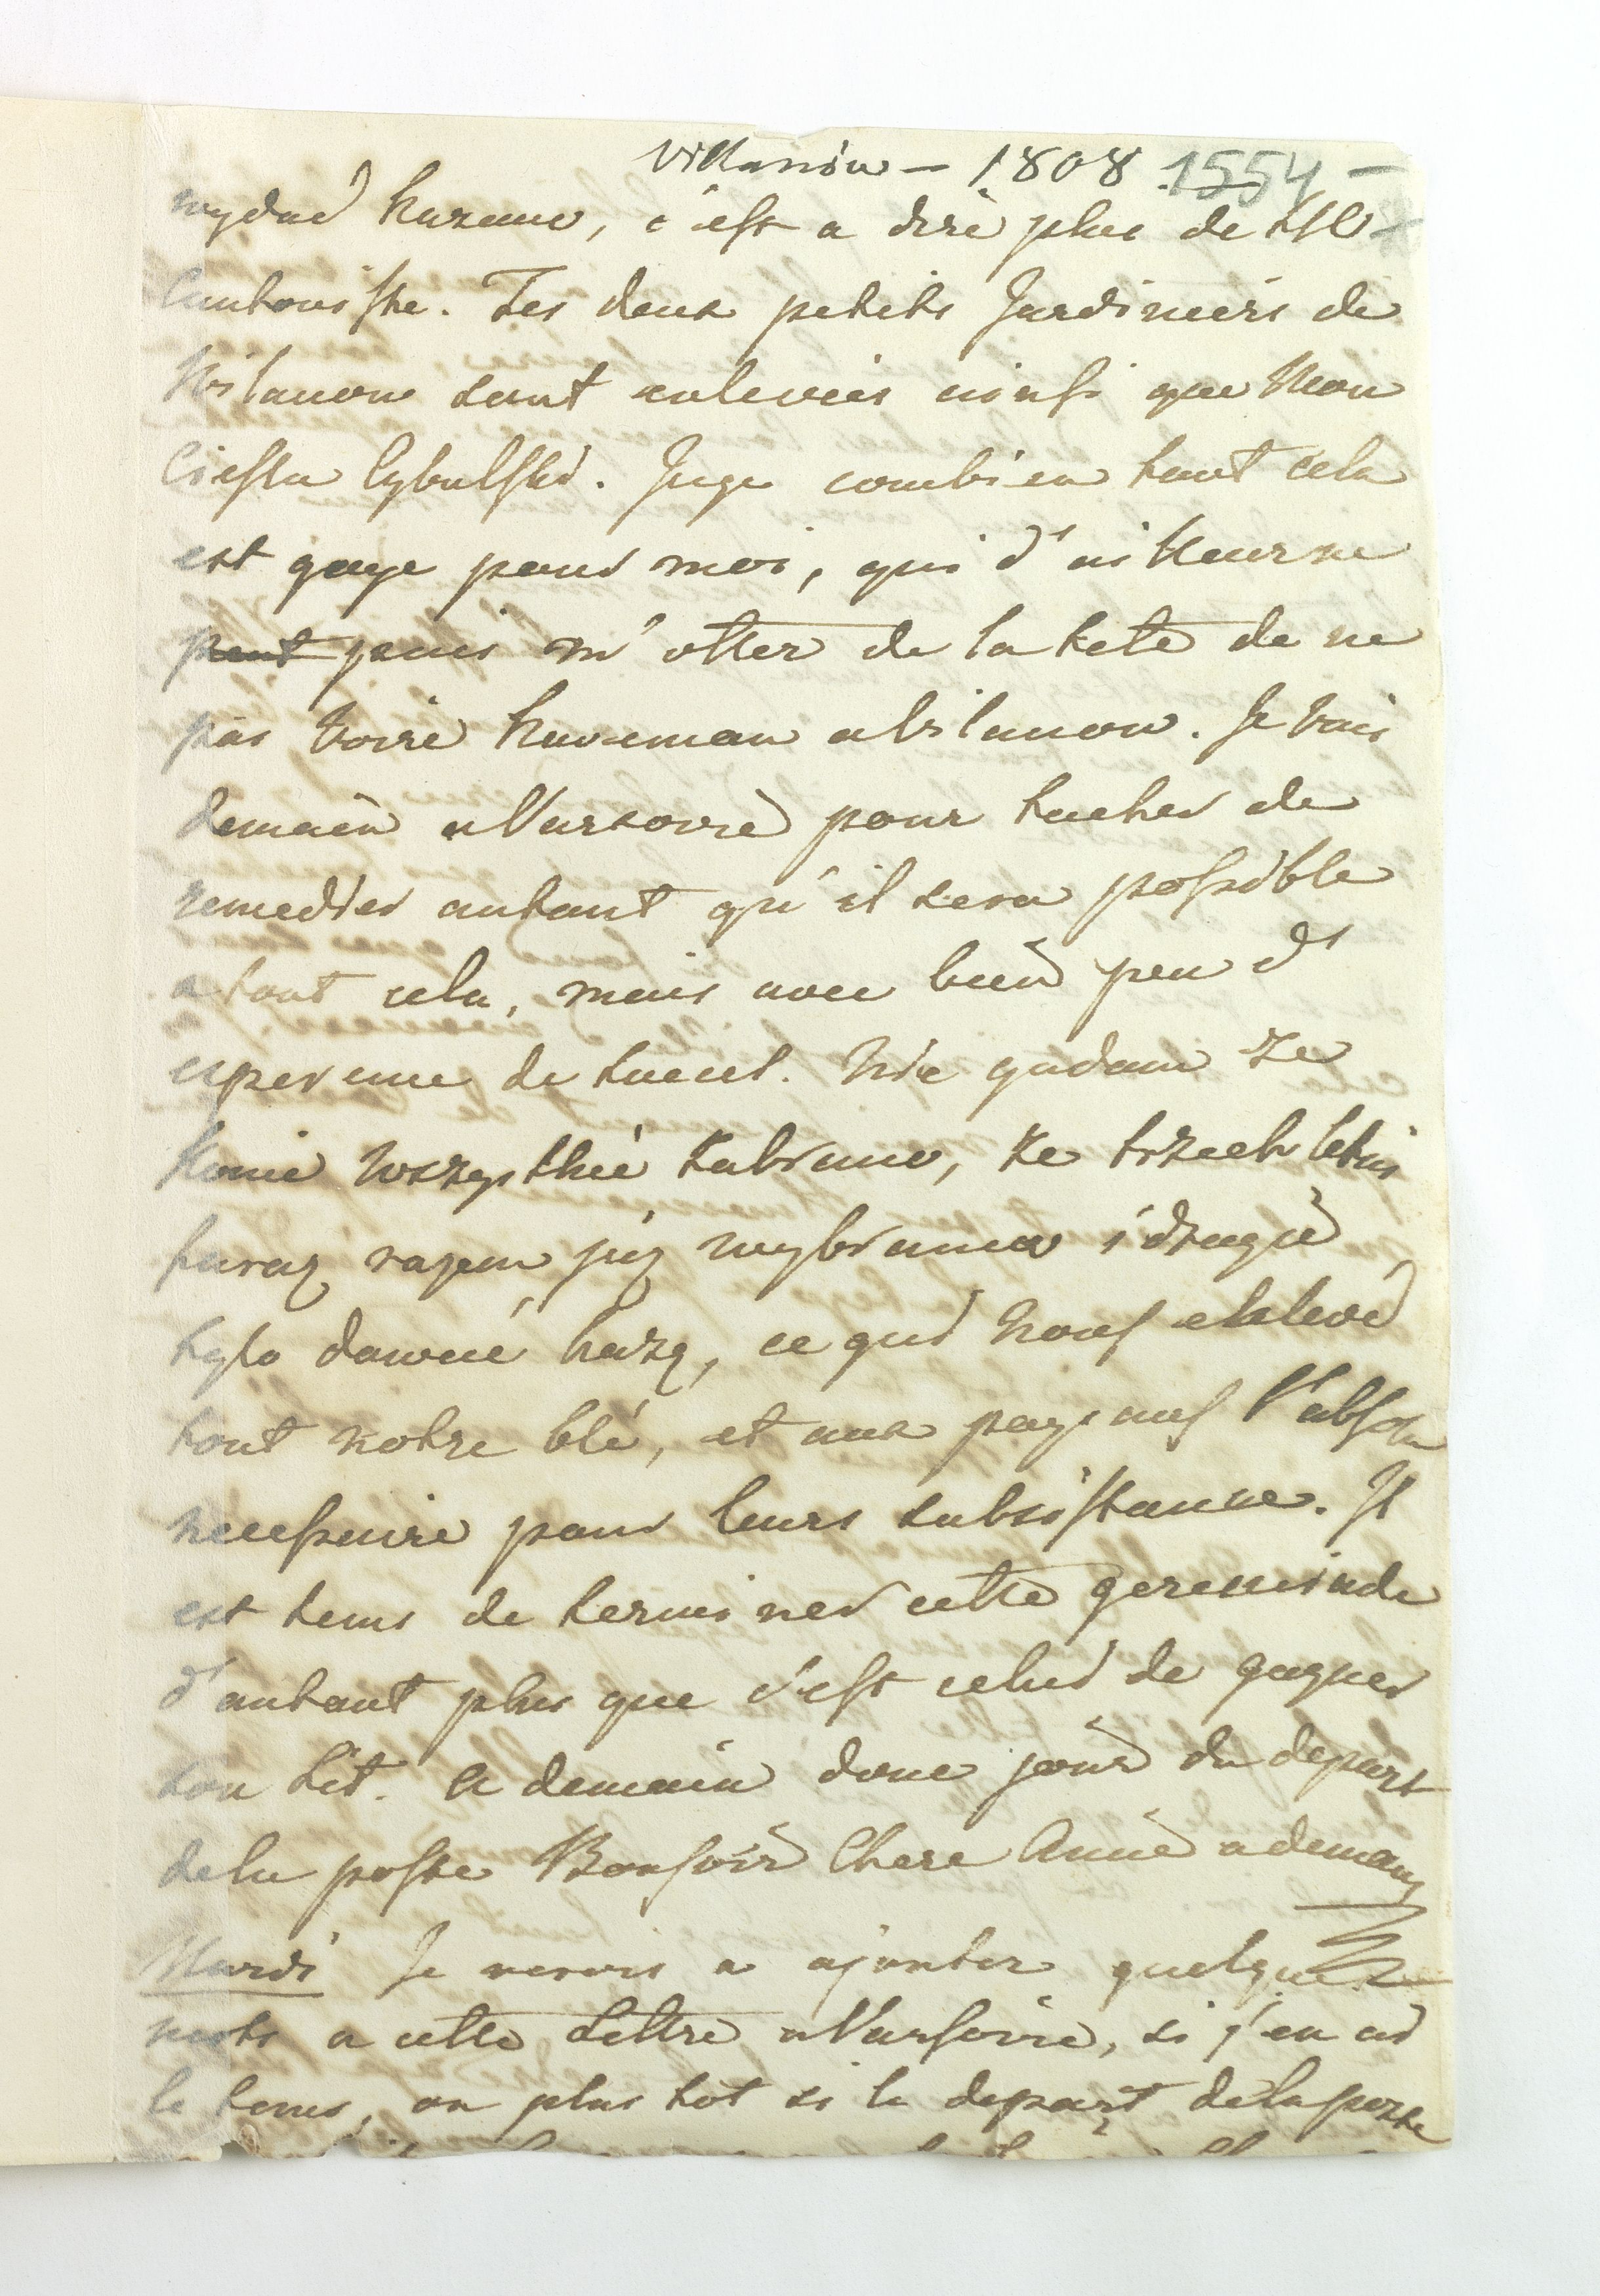 Willanów – 1808 1554 –
wydać kazano, c'est a dire plus de
Cantoniste. Les deux petits Jardiniers de
Wilanow sont enlevés ainsi que Mon
Ciesla Cybulski. Juge combien tout cela
est gaye pour moi, qui d'ailleurs ne
peut puis m'otter de la tete de ne
pas Voire Kuneman a Wilanow. Je Vais
demain a Varsovie pour tacher de
remedier autant qu'il sera possible
a tout cela, mais avec bien peu d'
esperence de succet. Nie gadam ze
konie wszystkie zabrano, ze trzech letni
furaz razem juz wybrano i drugie
tylo dawać każą, ce qui nous enleve
tout notre blé, et aux paysans l'absolu
necessaire pour leurs subsistance. Il
est tems de terminer cette geremiade
d'autant plus que c'est celui de gagner
son Lit. a demain donc jour du depart
de la poste Bonsoir Chere Anne a demain
Mardi Je reserve a ajouter quelques
mots a cette Lettre a Varsovie, si j'en ai
le tems, ou plus tot si le depart de la poste